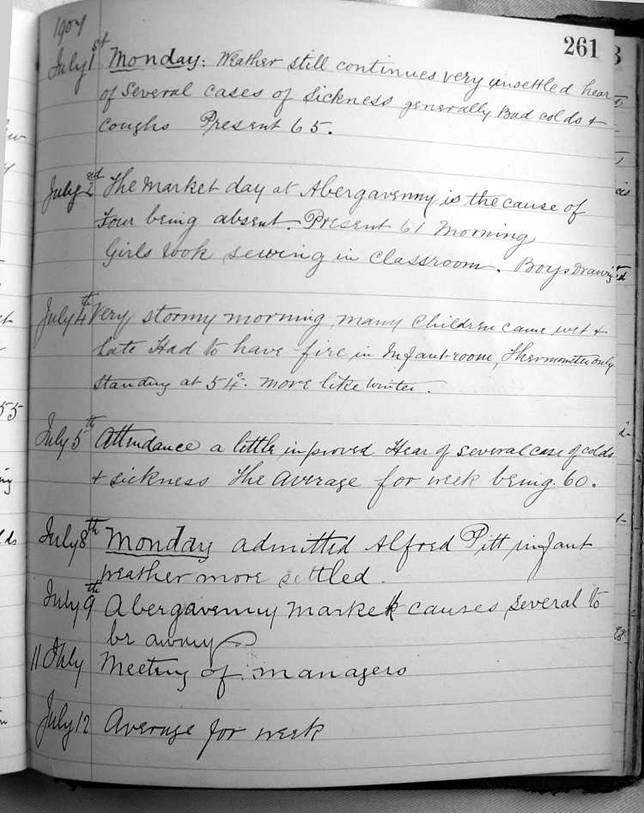 261
1907
July 1st Monday: Weather still continues very unsettled hear
of Several cases of Sickness generally Bad colds +
coughs Present 65.
July 2nd The Market day at Abergavenny is the cause of
Four being absent. Present 61 Morning
Girls took sewing in Classroom. Boys Drawing
July 4th Very stormy morning many Children came wet +
late Had to have fire in Infant room, Thermometer only
standing at 54°. More like Winter.
July 5th Attendance a little improved Hear of several case of colds
+ sickness The Average for week being 60.
July 8th Monday admitted Alfred Pitt infant
weather more settled.
July 9th Abergavenny Market causes several to
be away
11 July Meeting of managers
July 12 Average for week